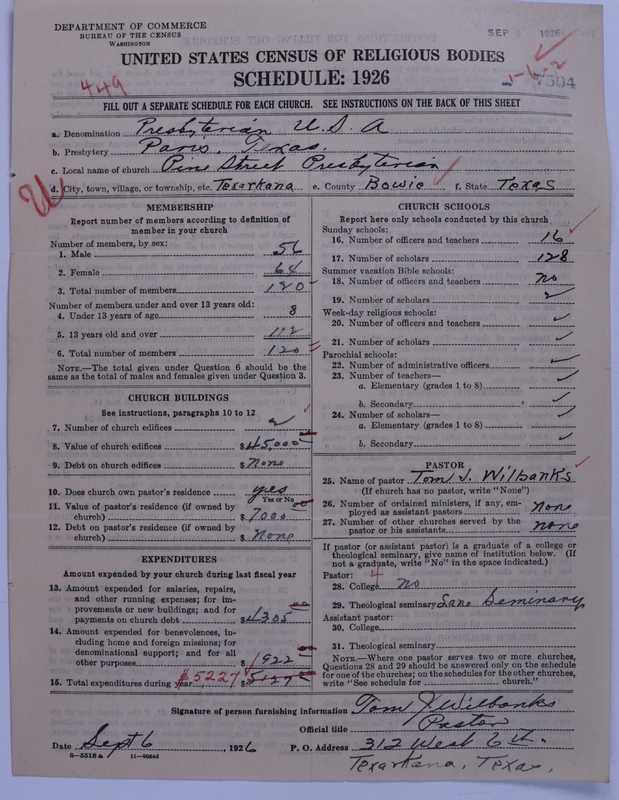 DEPARTMENT OF COMMERCE
BUREAU OF THE CENSUS
WASHINGTON
SEP 9 1926
UNITED STATES CENSUS OF RELIGIOUS BODIES
SCHEDULE: 1926
449
1-1-2
7504
FILL OUT A SEPARATE SCHEDULE FOR EACH CHURCH. SEE INSTRUCTIONS ON THE BACK OF THIS SHEET
a. Denomination Presbyterian U.S.A
b. Presbytery Paris, Texas.
c. Local name of church Pine Street Presbyterian
d. City, town, village, or township, etc. Texarkana e. County Bowie f. State Texas
MEMBERSHIP
Report number of members according to definition of
member in your church
Number of members, by sex:
1. Male 56
2. Female 64
3. Total number of members 120
Number of members under and over 13 years old:
4. Under 13 years of age 8
5. 13 years old and over 112
6. Total number of members 120
NOTE.—The total given under Question 6 should be
same as the total of males and females given under Question 3.
CHURCH BUILDINGS
See instructions, paragraphs 10 to 12
7. Number of church edifices 2
8. Value of church edifices $45,000
9. Debt on church edifices $None
10. Does church own pastor's residence yes
Yes or No
11. Value of pastor's residence (if owned by
church) $7000
12. Debt on pastor's residence (if owned by
church) $None
EXPENDITURES
Amount expended by your church during last fiscal year
13. Amount expended for salaries, repairs,
and other running expenses; for im-
provements or new buildings; and for
payments on church debt $4305
14. Amount expended for benevolences, in-
cluding home and foreign missions; for
denominational support; and for all
other purposes $922
15. Total expenditures during year $5227 $5127
CHURCH SCHOOLS
Report here only schools conducted by this church
Sunday schools:
16. Number of officers and teachers 16
17. Number of scholars 128
Summer vacation Bible schools:
18. Number of officers and teachers no
19. Number of scholars
Week-day religious schools:
20. Number of officers and teachers
21. Number of scholars
Parochial schools:
22. Number of administrative officers
23. Number of teachers—
a. Elementary (grades 1 to 8)
b. Secondary
24. Number of scholars—
a. Elementary (grades 1 to 8)
b. Secondary
PASTOR
25. Name of pastor Tom J. Wilbanks
(If church has no pastor, write "None")
26. Number of ordained ministers, if any, em-
ployed as assistant pastors none
27. Number of other churches served by the
pastor or his assistants none
If pastor (or assistant pastor) is a graduate of a college or
theological seminary, give name of institution below. (If
not a graduate, write "No" in the space indicated.)
Pastor: 4
28. College no
29. Theological seminary Lane Seminary
Assistant pastor:
30. College
31. Theological seminary
NOTE.—Where one pastor serves two or more churches,
Questions 28 and 29 should be answered only on the schedule
for one of the churches; on the schedules for the other churches,
write "See schedule for church."
Signature of person furnishing information Tom J Wilbanks
Official title Pastor
Date Sept 6, 1926 P. O. Address 312 West 6th.
8—5518 a
Texarkana, Texas.